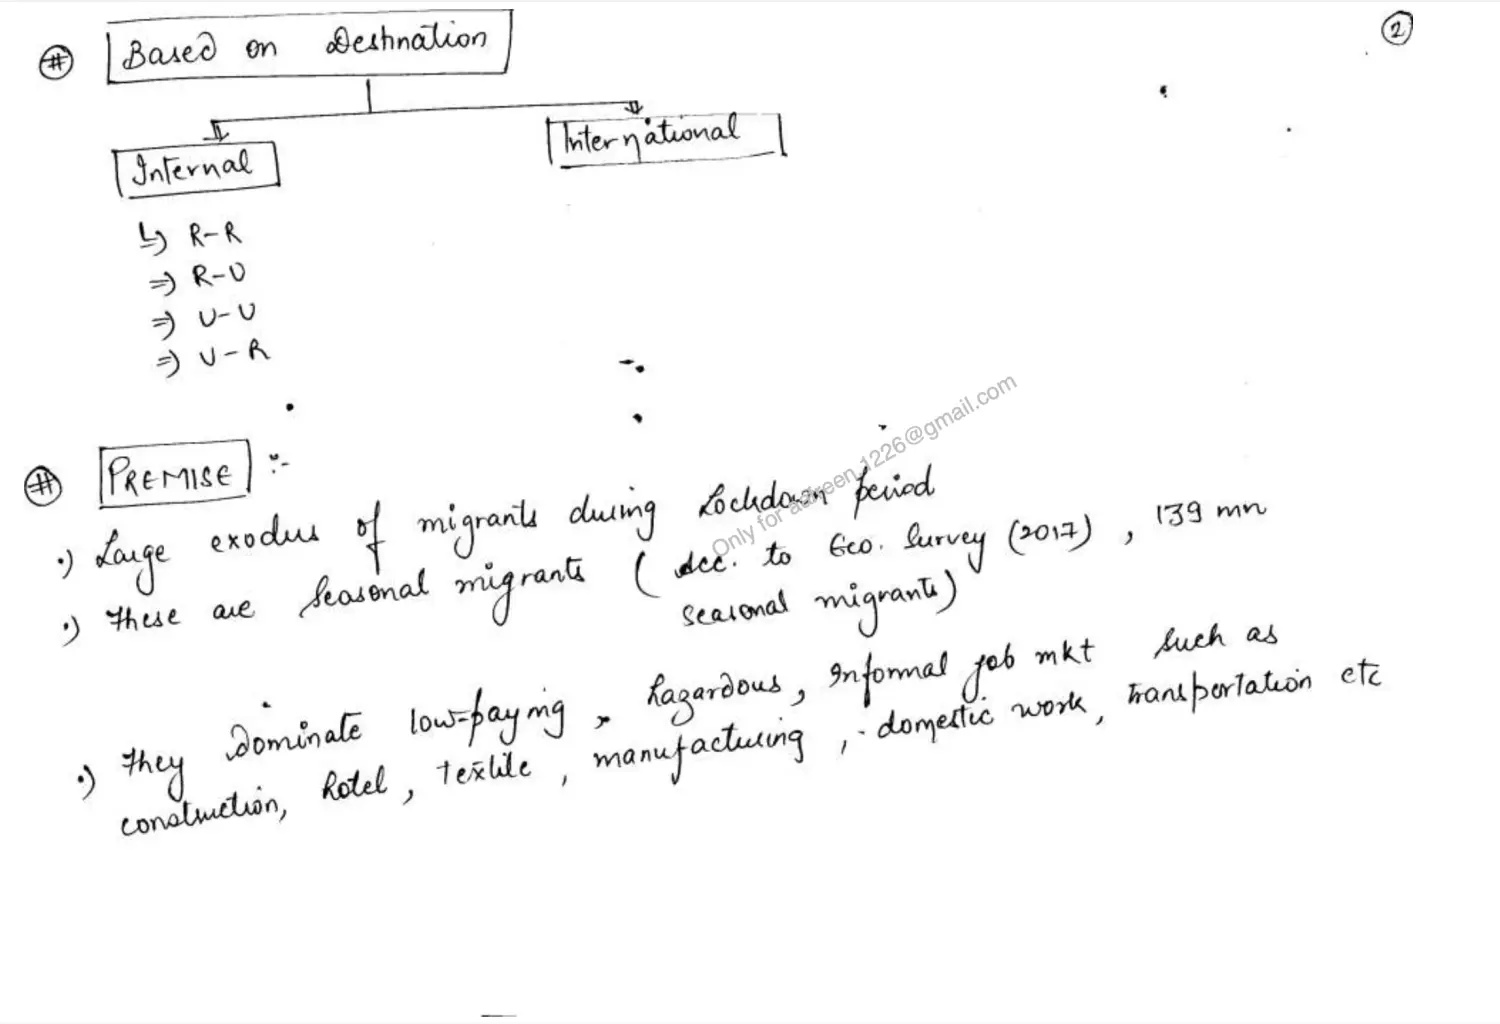 2
# Based on Destination
Internal International
↳ R-R
⇒ R-U
⇒ U-U
⇒ U-R
# PREMISE :-
•) Large exodus of migrants during Lockdown period
•) These are seasonal migrants ( Acc. to Eco. Survey (2017) , 139 mn
seasonal migrants)
•) They dominate low-paying , hazardous, Informal job mkt such as
construction, hotel, textile, manufacturing, domestic work, transportation etc
Only for 1226@gmail.com